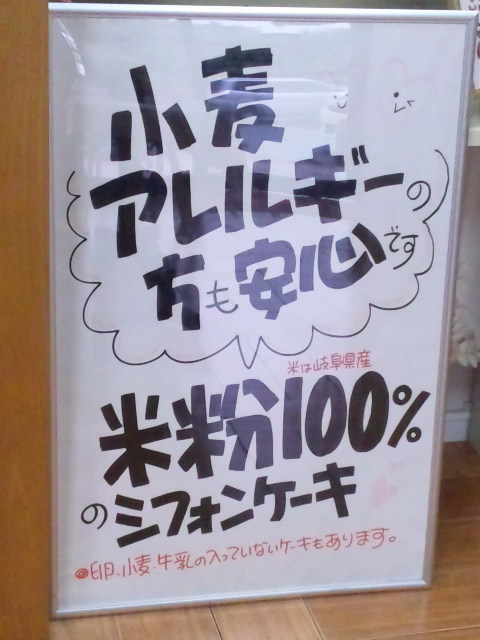 小麦
アレルギーの
方も安心です
米は岐阜県産
米粉100%
のシフォンケーキ
●卵、小麦、牛乳の入っていないケーキもあります。